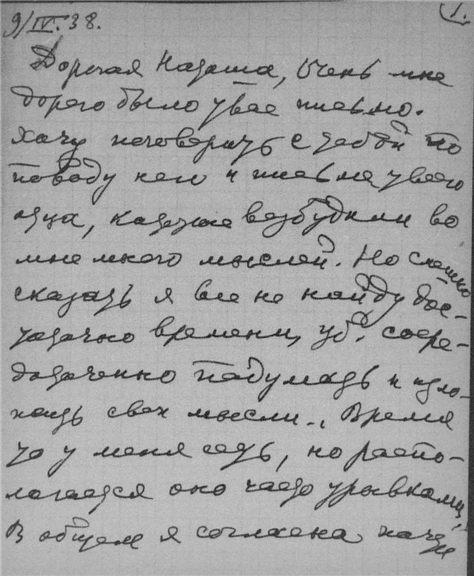 9/IV.38.
1.
Дорогая Наташа, Очень мне
дорого было твое письмо.
Хочу поговорить с тобой по
поводу него и письма твоего
отца, которые возбудили во
мне много мыслей. Но смешно
сказать я все не найду дос-
таточно времени, чтоб. сосре-
доточенно подумать и изло-
жить свои мысли. Время
то у меня есть, но распо-
лагается оно часто урывками,
В общем я согласна